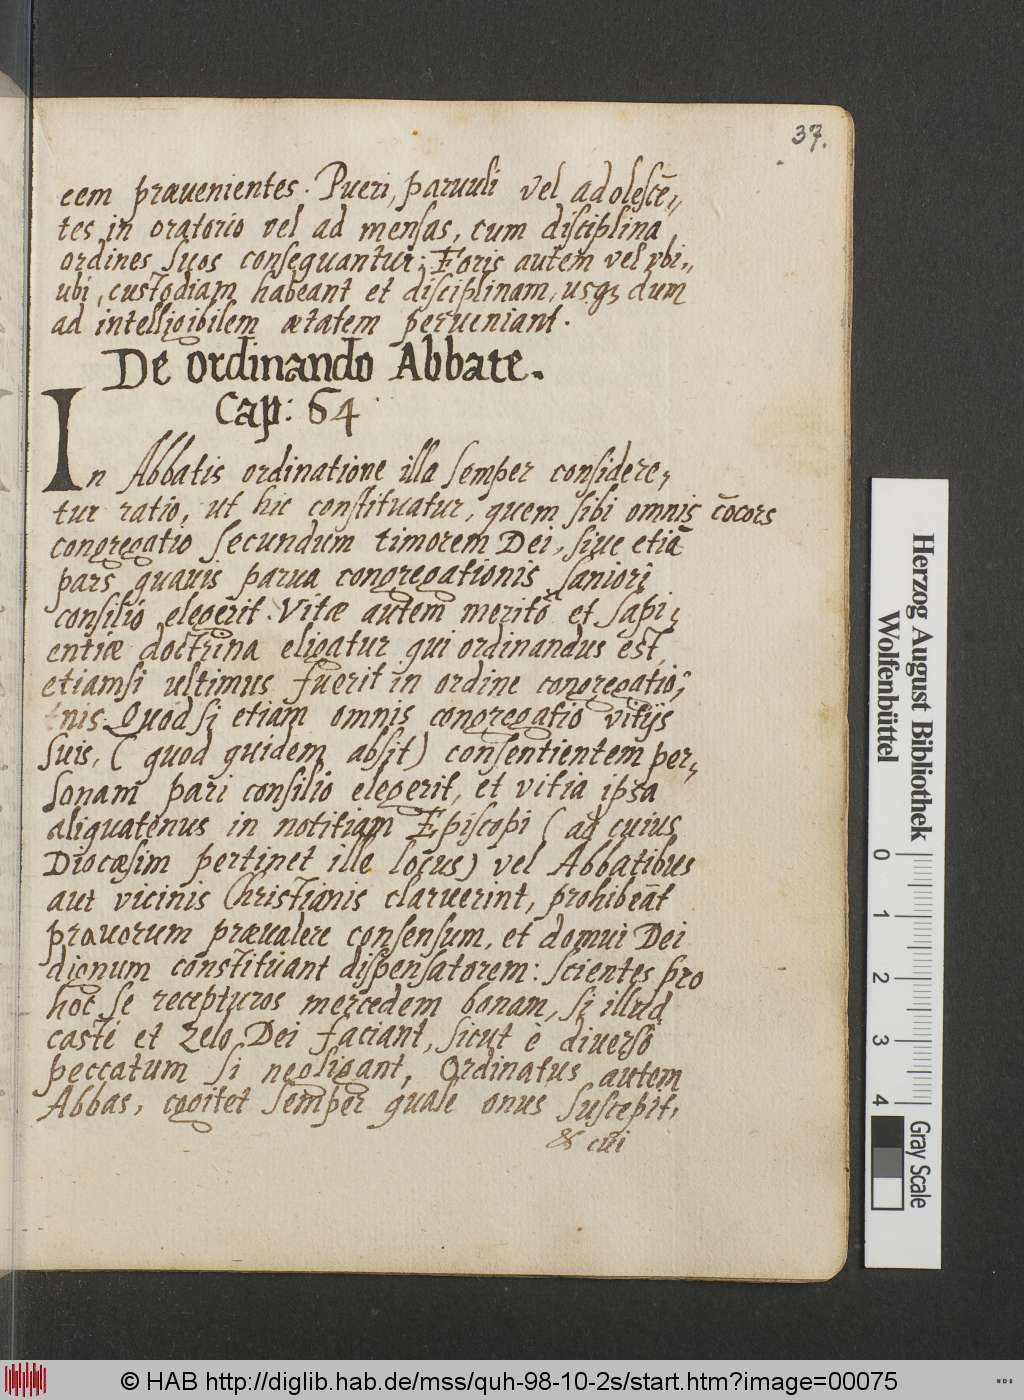 37.
cem præuenientes. Pueri, paruuli vel adolescē=
tes in oratorio vel ad mensas, cum disciplina
ordines suos consequantur; Foris autem vel vbi=
ubi, custodiam habeant et disciplinam, usqꝫ dum
ad intelligibilem ætatem perueniant.
De ordinando Abbate.
Cap: 64
In Abbatis ordinatione illa semper considere,
tur ratio, ut hic constituatur, quem sibi omnis cōcors
congregatio secundum timorem Dei, siue etiā
pars quauis parua congregationis saniori
consilio elegerit. Vitæ autem merito et sapi,
entiæ doctrina eligatur qui ordinandus est,
etiamsi ultimus fuerit in ordine congregatio,
nis. Quod si etiam omnis congregatio vitijs
suis, (quod quidem absit) consentientem per,
sonam pari consilio elegerit, et vitia ipsa
aliquatenus in notitiam Episcopi (ad cuius
Diocæsim pertinet ille locus) vel Abbatibus
aut vicinis Christianis claruerint, prohibeāt
prauorum præualere consensum, et domui Dei
dignum constituant dispensatorem: scientes pro
hoc se recepturos mercedem bonam, si illud
caste et zelo Dei faciant, sicut è diverso
peccatum si negligant, Ordinatus autem
Abbas, cogitet semper quale onus suscepit,
& cui
Herzog August Bibliothek
Wolfenbüttel
0 1 2 3 4
Gray Scale
© HAB http://diglib.hab.de/mss/quh-98-10-2s/start.htm?image=00075